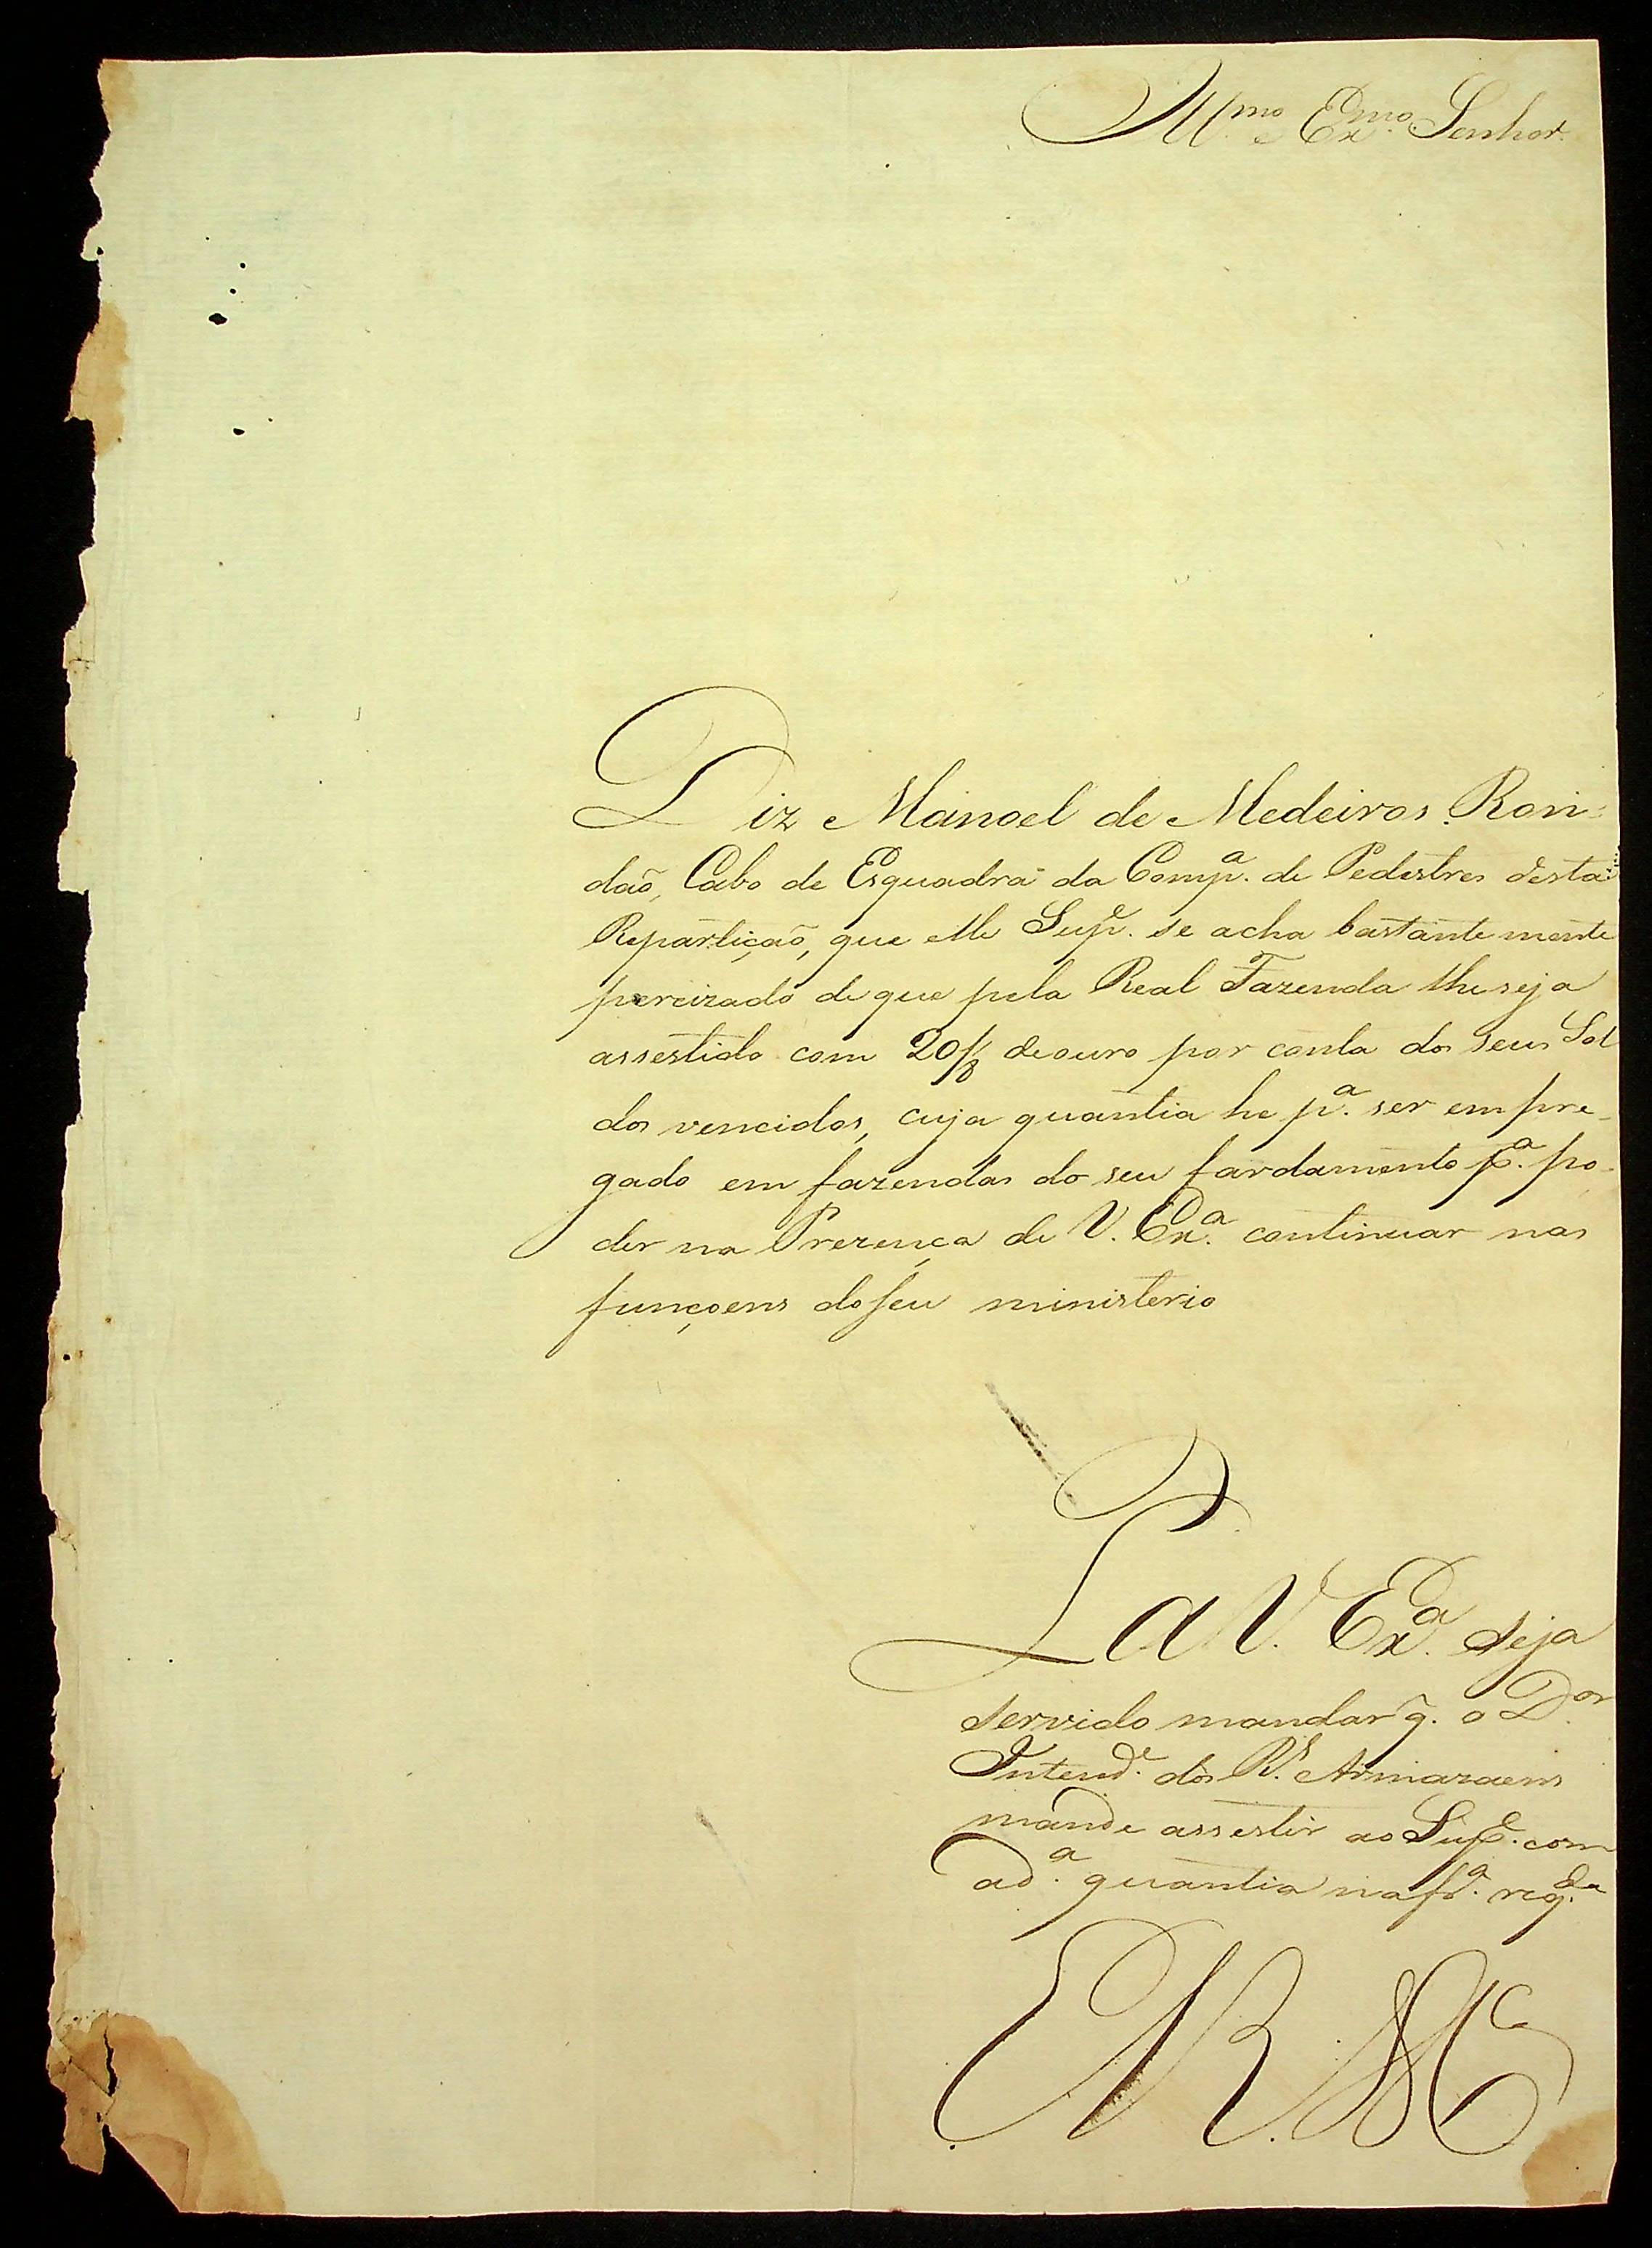 Ill.mo e Ex.mo Senhor
Diz Manoel de Medeiros Ron=
daõ, Cabo de Esquadra da Comp.a de Pedestres desta
Repartiçaõ, que elle Sup.e se acha bastante mente
percizado de que pela Real Fazenda lhe seja
assestido com 20/8 de ouro por conta dos seus Sol
dos vencidos, cuja quantia he p.a ser em pre-
gado em fazendas do seu fardamento p.a po-
der na Prezença de V. Ex.a continuar nas
funçoens do seu ministerio
P a V. Ex.a seja
servido mandar q̃. o D.or
Intend.e dos R.s Armazaens
mande assestir ao Sup.e com
a d.a quantia na fr.a reg.da
E R M.ce